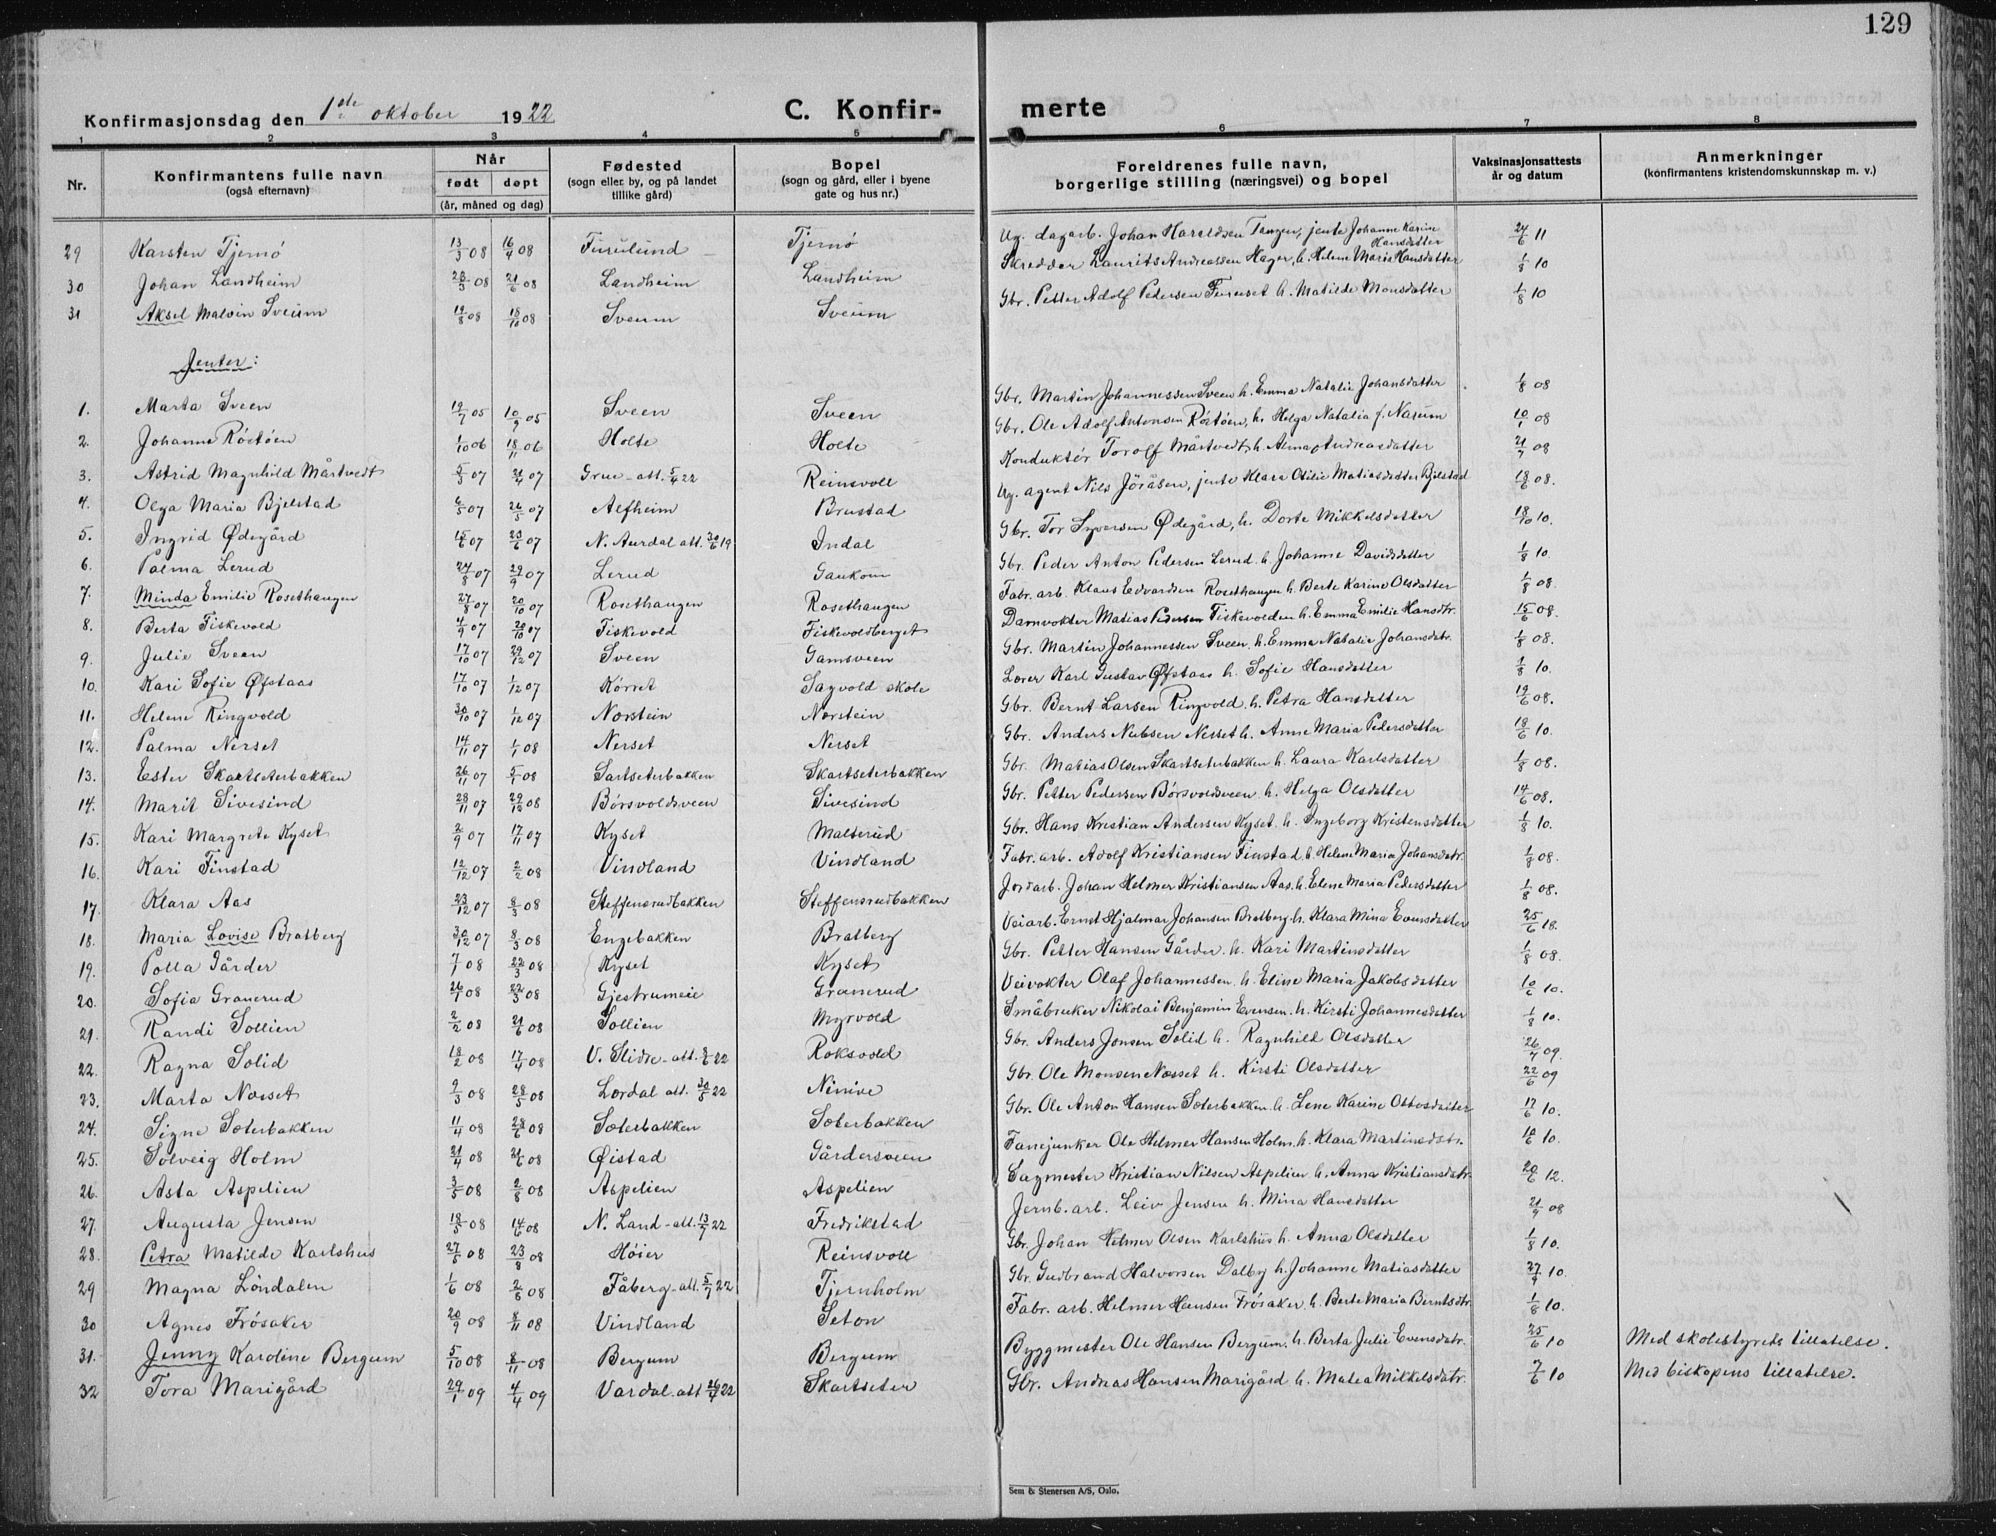 129
Konfirmasjonsdag den 1ste oktober 1922 C. Konfir- merte
1 2 3 4 5 6 7 8
Nr. Konfirmantens fulle navn (også efternavn) Når født døpt (år, måned og dag) Fødested (sogn eller by, og på landet tillike gård) Bopel (sogn og gård, eller i byene gate og hus nr.) Foreldrenes fulle navn, borgerlige stilling (næringsvei) og bopel Vaksinasjonsattests år og datum Anmerkninger (konfirmantens kristendomskunnskap m. v.)
29 Karsten Tjernø 13/3 08 16/4 08 Furulund Tjernø Ug. dagarb. Johan Haraldsen Tangen, jente Johanne Karine Hansdatter 24/6 11
30 Johan Landheim 28/3 08 21/6 08 Landheim Landheim Skredder Laurits Andreassen Hager, h. Helene Marie Hansdatter 1/8 10
31 Aksel Malvin Sveum 19/8 08 18/10 08 Sveum Sveum Gbr. Petter Adolf Pedersen Furuset h. Matilde Monsdatter 1/8 10
Jenter:
1. Marta Sveen 19/7 05 10/9 05 Sveen Sveen Gbr. Martin Johannessen Sveen h. Emma Natalie Johansdatter 1/8 08
2. Johanne Røstøen 1/10 06 18/11 06 Holte Holte Gbr. Ole Adolf Antonsen Røstøen, h. Helga Natalia f. Narum 10/1 08
3. Astrid Magnhild Mårtvedt 5/3 07 21/4 07 Grue - att. 5/4 22 Reinsvoll Konduktør Torolf Mårtvedt, h. Alma Andreasdatter 21/7 08
4. Olga Maria Bjelstad 6/5 07 26/5 07 Alfheim Brustad Ug. agent Nils Jøråsen, jente Klara Otilie Matiasdatter Bjelstad 18/6 08.
5. Ingrid Ødegård 15/6 07 23/6 07 N. Aurdal att. 30/6 19 Indal Gbr. Tor Syversen Ødegård, h. Dorte Mikkelsdatter 18/10 10.
6. Palma Lerud 24/8 07 29/9 07 Lerud Gaukom Gbr. Peder Anton Pedersen Lerud. h. Johanne Davidsdatter 1/8 10.
7. Minda Emilie Rosethaugen 27/8 07 20/10 07 Rosethaugen Rosethaugen Fabr. arb. Klaus Edvardsen Rosethaugen h. Berte Karine Olsdatter 1/8 08.
8. Berta Fiskevold 4/9 07 20/10 07 Fiskevold Fiskevoldberget Damvokter Matias Pedersen Fiskevolden h. Emma Emilie Hansdtr. 15/6 08.
9. Julie Sveen 17/10 07 29/12 07 Sveen Gamsveen Gbr. Martin Johannessen Sveen. h. Emma Natalie Johansdtr. 1/8 08.
10. Kari Sofie Øfstaas 17/10 07 1/12 07 Korset Sagvold skole Lærer Karl Gustav Øfstaas h. Sofie Hansdatter 1/8 10.
11. Helene Ringvold 30/10 07 1/12 07 Norstein Norstein Gbr. Bernt Larsen Ringvold. h. Petra Hansdatter 19/6 08.
12. Palma Nerset 14/11 07 1/1 08 Nerset Nerset Gbr. Anders Nielsen Nerset h. Anne Maria Pedersdatter 18/6 10.
13. Ester Skartseterbakken 26/11 07 5/1 08 Sartseterbakken Skartseterbakken Gbr. Matias Olsen Skartseterbakken h. Laura Karlsdatter 1/8 08.
14. Marit Sivesind 28/11 07 29/12 08 Børsvoldsveen Sivesind Gbr. Petter Pedersen Børsvoldsveen. h. Helga Olsdatter 14/6 08.
15. Kari Margrete Kyset 2/9 07 17/11 07 Kyset Malterud Gbr. Hans Kristian Andersen Kyset. h. Ingeborg Kristensdatter 1/8 10.
16. Kari Finstad 12/12 07 2/2 08 Vindland Vindland Fabr. arb. Adolf Kristiansen Finstad. h. Helene Maria Johansdtr. 1/8 08.
17. Klara Aas 23/12 07 8/3 08 Steffensrudbakken Steffensrudbakken Jordarb. Johan Helmer Kristiansen Aas. h. Elene Maria Pedersdatter 1/8 08.
18. Maria Lovise Bratberg 30/12 07 8/3 08 Engebakken Bratberg Veiarb. Ernst Hjalmar Johansen Bratberg. h. Klara Mina Evensdatter 25/6 18.
19. Polla Gårder 7/1 08 22/3 08 Kyset Kyset Gbr. Petter Hansen Gårder. h. Kari Martinsdatter 1/8 08.
20. Sofia Granerud 26/1 08 22/3 08 Gjestrumeie Granerud Veivokter Olaf Johannessen. h. Eline Maria Jakobsdatter 10/6 10.
21. Randi Sollien 2/2 08 21/6 08 Sollien Myrvold Småbruker Nikolai Benjamin Evensen. h. Kirsti Johannesdatter 1/8 10.
22. Ragna Solid 18/2 08 17/4 08 V. Slidre - att. 8/6 22 Roksvold Gbr. Anders Jonsen Solid h. Ragnhild Olsdatter 26/7 09.
23. Marta Nosset 9/3 08 28/5 08 Lordal att. 30/5 22 Ninive Gbr. Ole Monsen Næsset h. Kirsti Olsdatter 22/6 09
24. Signe Sæterbakken 11/4 08 28/6 08 Sæterbakken Sæterbakken Gbr. Ole Anton Hansen Sæterbakken. h. Lene Karine Ottosdatter 17/6 10.
25. Solveig Holm 21/4 08 21/6 08 Øistad Gårdersveen Fanejunker Ole Helmer Hansen Holm. h. Klara Martinsdtr. 10/6 10.
26. Asta Aspelien 3/5 08 2/8 08 Aspelien Aspelien Sagmester Kristian Nilsen Aspelien h. Anna Kristiansdtr. 20/6 12.
27. Augusta Jensen 18/5 08 14/6 08 N. Land - att. 13/7 22 Fredrikstad Jernb. arb. Leiv Jensen h. Mina Hansdatter 21/9 08
28. Petra Matilde Karlshus 27/5 08 23/8 08 Høier Reinsvoll Gbr. Johan Helmer Olsen Karlshus h. Anna Olsdatter 1/8 10.
29 Magna Løndalen 1/6 08 2/6 08 Fåberg - att. 5/7 22 Tjernholm Gbr. Gudbrand Halvorsen Dalby h. Johanne Matiasdatter 27/9 10.
30 Agnes Frøsaker 20/9 08 8/11 08 Vindland Seton Fabr. arb. Helmer Hansen Frøsaker. h. Berte Maria Berntsdtr. 1/8 10.
31. Jenny Karoline Bergum 5/10 08 8/11 08 Bergum Bergum Byggmester Ole Hansen Bergum. h. Berta Julie Evensdatr. 25/6 10 Med skolestyrets tillatelse.
32 Tora Marigård 29/1 09 4/4 09 Vardal. att 26/7 22 Skartseter Gbr. Andreas Hansen Marigård h. Matea Mikkelsdatr. 7/6 10 Med biskopens tillatelse.
Sem & Stenersen A/S, Oslo.